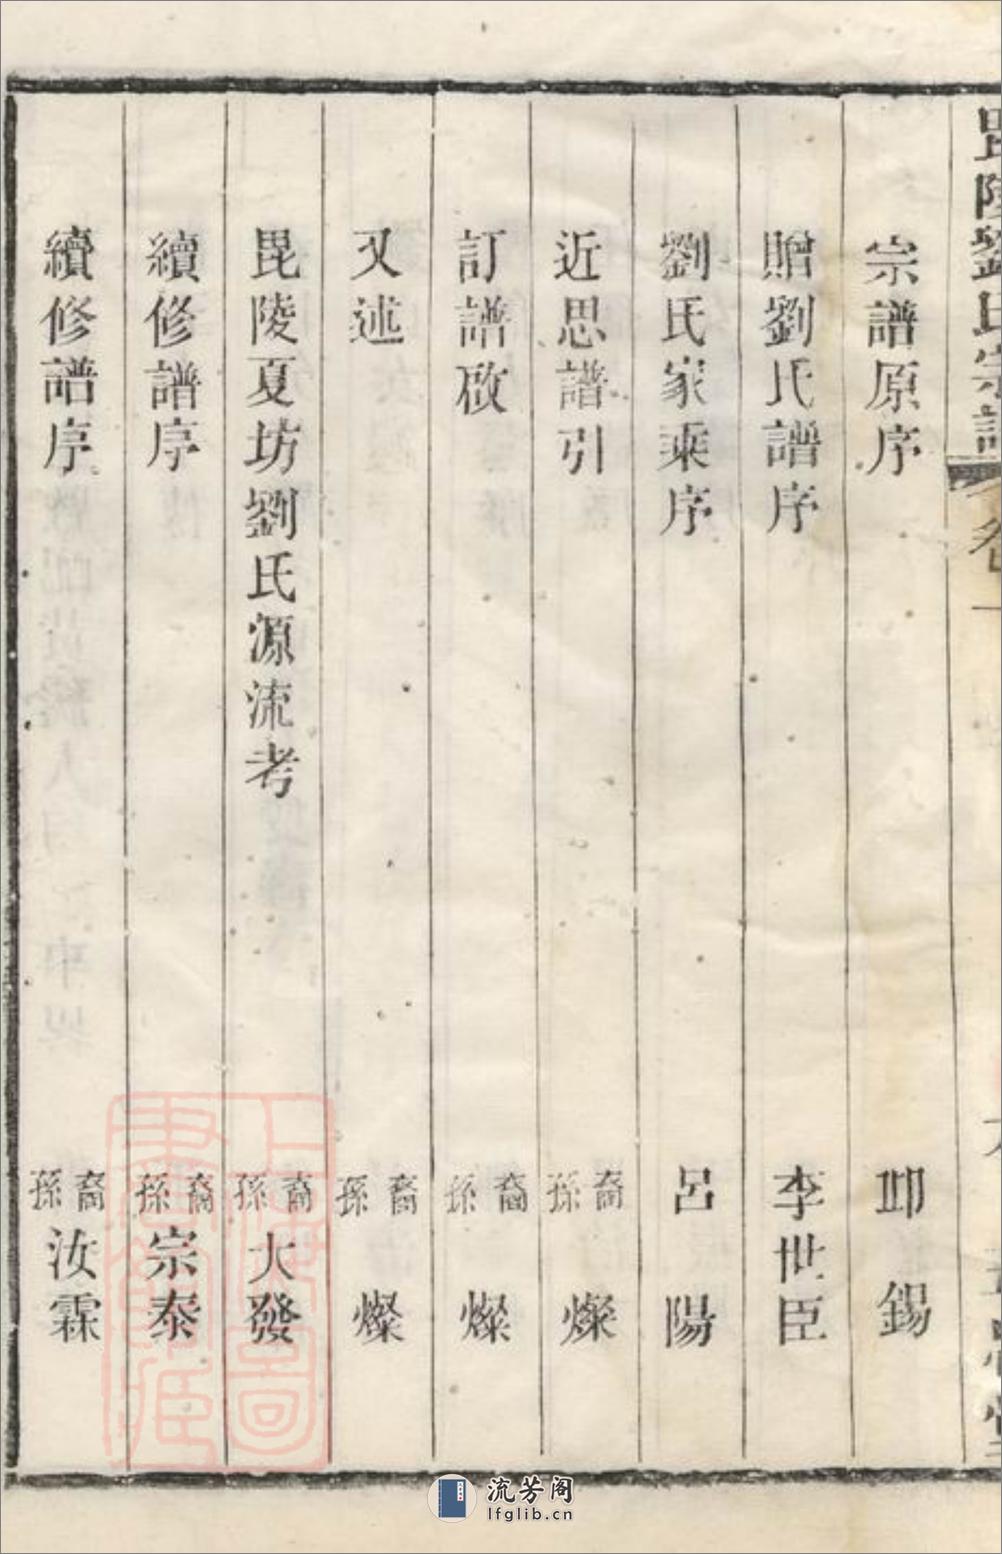 毘陵劉氏宗譜 卷一
宗譜原序 邱錫
贈劉氏譜序 李世臣
劉氏家乘序 呂陽
近思譜引 裔孫燦
訂譜啟 裔孫燦
又述 裔孫燦
毘陵夏坊劉氏源流考 裔孫大發
續修譜序 裔孫宗泰
續修譜序 裔孫汝霖
上海圖書館藏
流芳阁
lfglib.cn